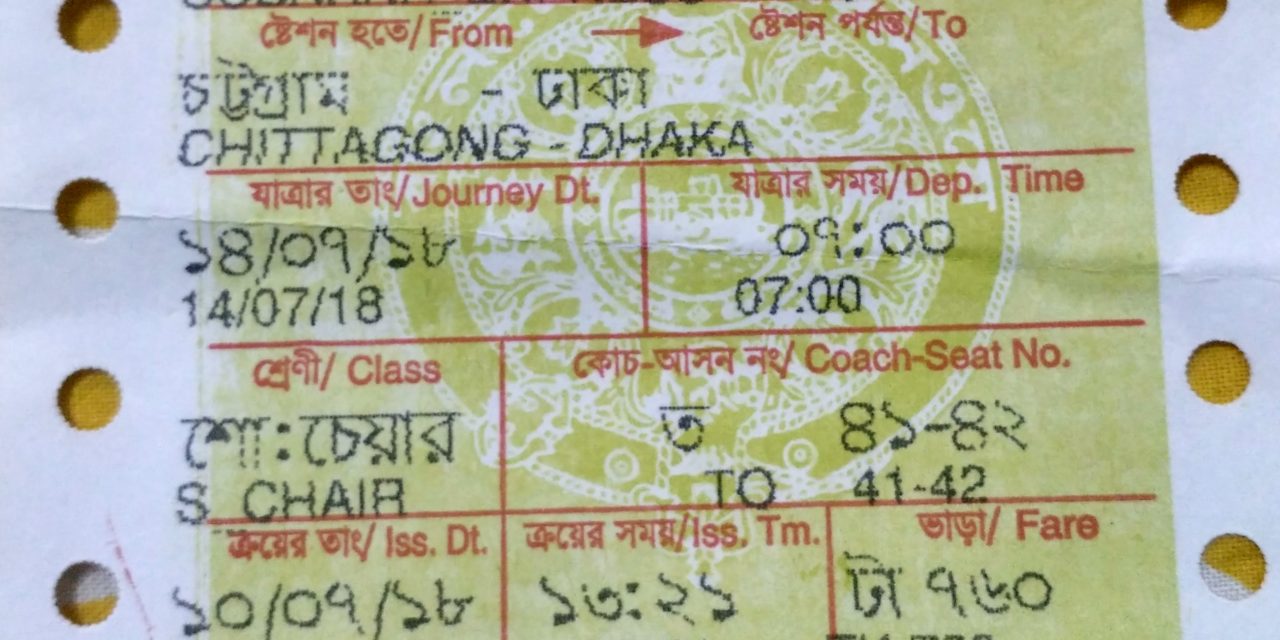 ষ্টেশন হতে/From ষ্টেশন পর্যন্ত/To
চট্টগ্রাম - ঢাকা
CHITTAGONG - DHAKA
যাত্রার তাং/Journey Dt. যাত্রার সময়/Dep. Time
১৪/০৭/১৮ ০৭:০০
14/07/18 07:00
শ্রেণী/ Class কোচ-আসন নং/ Coach-Seat No.
শো:চেয়ার ত ৪১-৪২
S CHAIR TO 41-42
ক্রয়ের তাং/ Iss. Dt. ক্রয়ের সময়/Iss. Tm. ভাড়া/ Fare
১০/০৭/১৮ ১৩:২১ টা ৭৬০